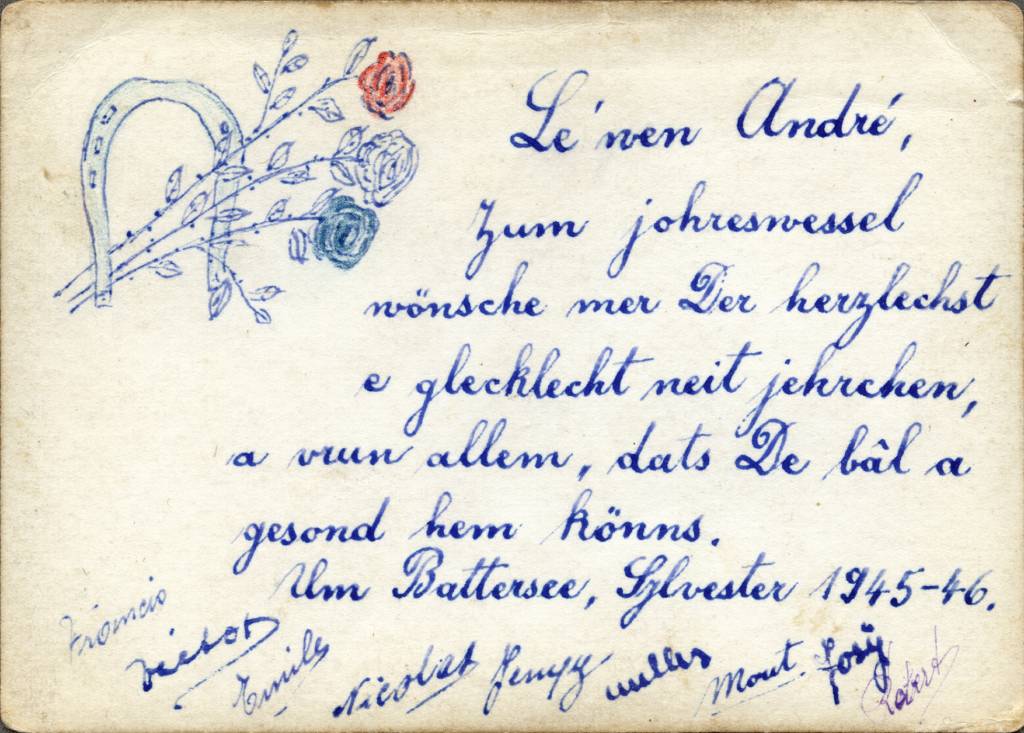 Le'wen André,
Zum johreswessel
wönsche mer Der herzlechst
e glecklecht neit jehrchen,
a vrun allem, dats De bâl a
gesond hem könns.
Um Battersee, Sylvester 1945-46.
Victor Emile Nicolas Jempy Mout. Josÿ Robert